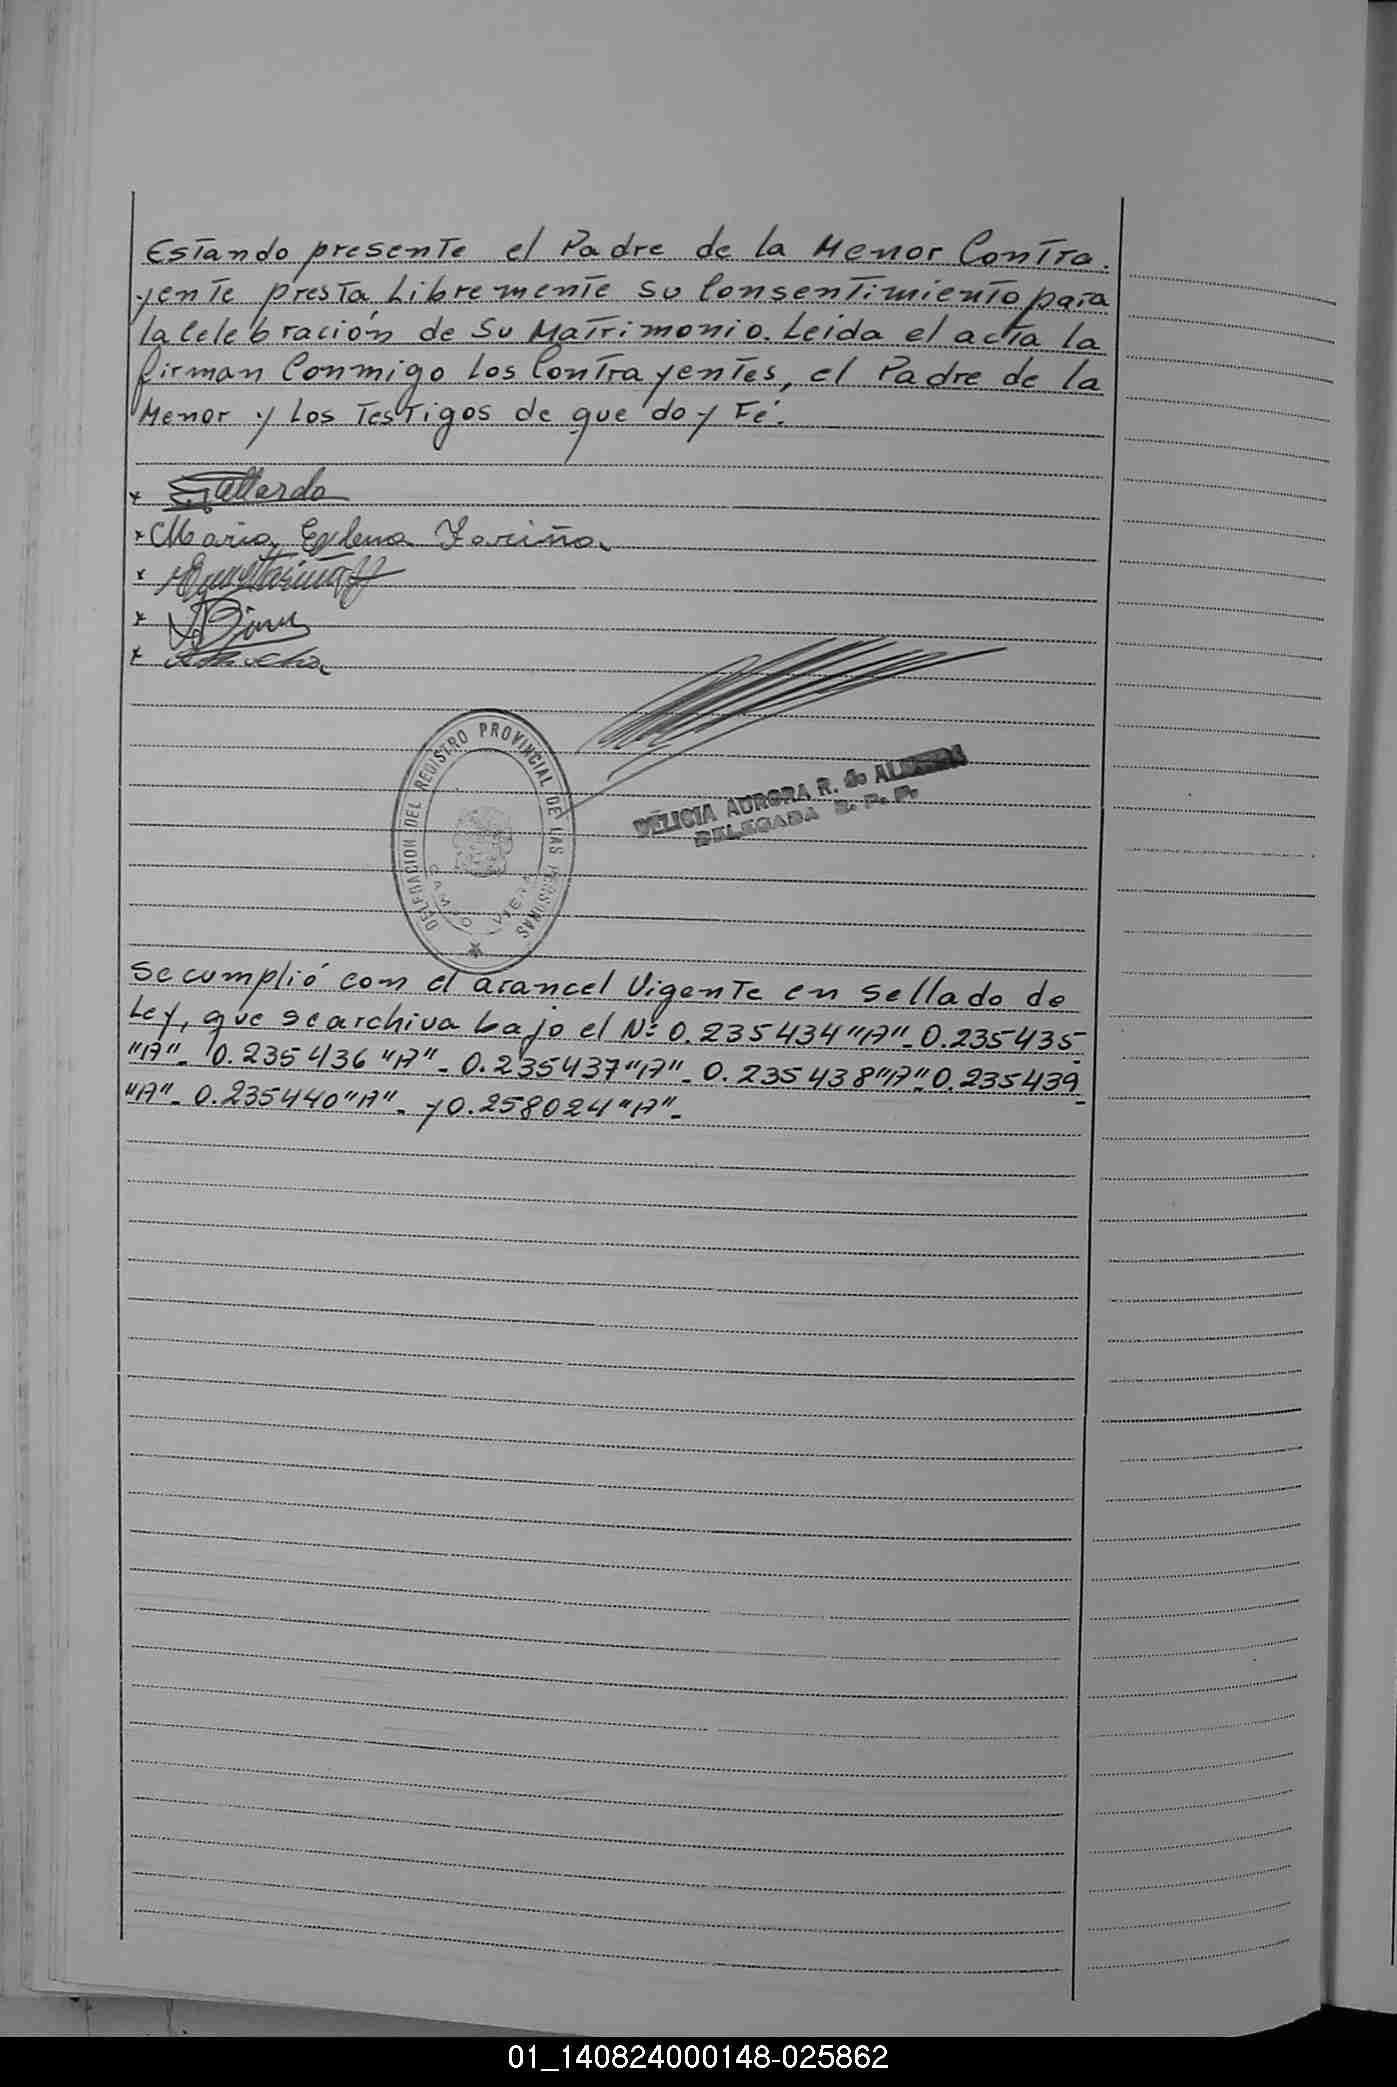 Estando presente el Padre de la Menor Contra.
yente presta Libremente su Consentimiento para
la Celebración de Su Matrimonio. Leida el acta la
firman Conmigo los Contrayentes, el Padre de la
Menor y los Testigos de que doy Fé.
x Gallardo
x Maria Fariña
x
x
x
DELEGACION DEL REGISTRO PROVINCIAL DE LAS PERSONAS
CAMPO VIERA
DELICIA AURORA R. de
DELEGADA R. P. P.
Se cumplió con el arancel Vigente en sellado de
Ley, que se archiva bajo el Nº 0.235434 "A"- 0.235435
"A"- 0.235436 "A"- 0.235437 "A"- 0.235438 "A"- 0.235439
"A"- 0.235440 "A"- y 0.258024 "A"-
01_140824000148-025862